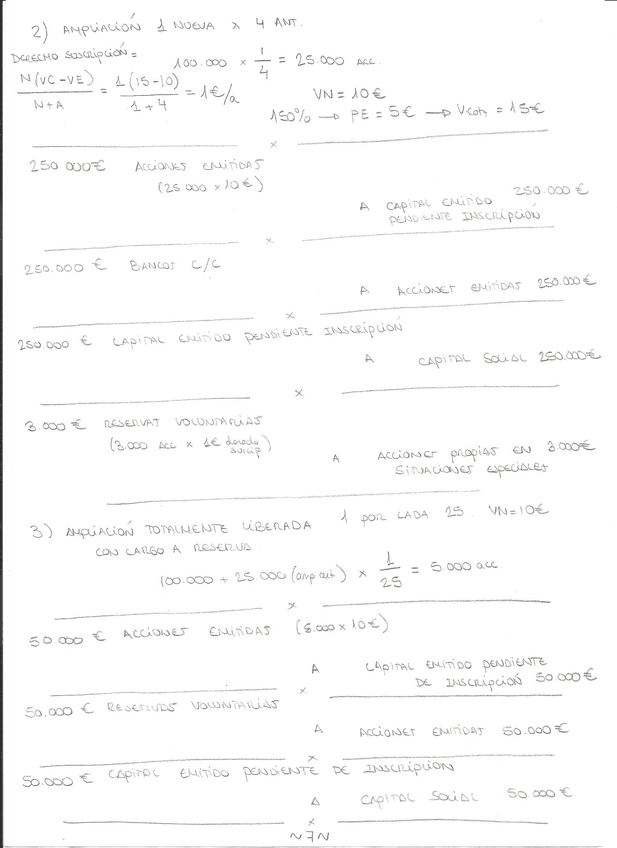 2) AMPLIACIÓN 1 NUEVA x 4 ANT.
DERECHO SUSCRIPCIÓN =
100.000 x 1/4 = 25.000 ACC.
N(VC-VE) / N+A = 1(15-10) / 1+4 = 1€/a
VN = 10€
150% → PE = 5€ → Vcotz = 15€
x
250.000€ ACCIONES EMITIDAS
(25.000 x 10€)
A CAPITAL EMITIDO 250.000€
PENDIENTE INSCRIPCIÓN
x
250.000 € BANCOS C/C
A ACCIONES EMITIDAS 250.000€
x
250.000 € CAPITAL EMITIDO PENDIENTE INSCRIPCIÓN
A CAPITAL SOCIAL 250.000€
x
3.000 € RESERVAS VOLUNTARIAS
(3.000 ACC x 1€ derecho suscrip)
A ACCIONES PROPIAS EN 3.000€
SITUACIONES ESPECIALES
3) AMPLIACIÓN TOTALMENTE LIBERADA 1 POR CADA 25. VN=10€
CON CARGO A RESERVAS
100.000 + 25.000 (amp ant) x 1/25 = 5.000 acc
x
50.000 € ACCIONES EMITIDAS (5.000 x 10€)
A CAPITAL EMITIDO PENDIENTE
DE INSCRIPCIÓN 50.000€
x
50.000 € RESERVAS VOLUNTARIAS
A ACCIONES EMITIDAS 50.000€
x
50.000 € CAPITAL EMITIDO PENDIENTE DE INSCRIPCIÓN
A CAPITAL SOCIAL 50.000€
x
~7~